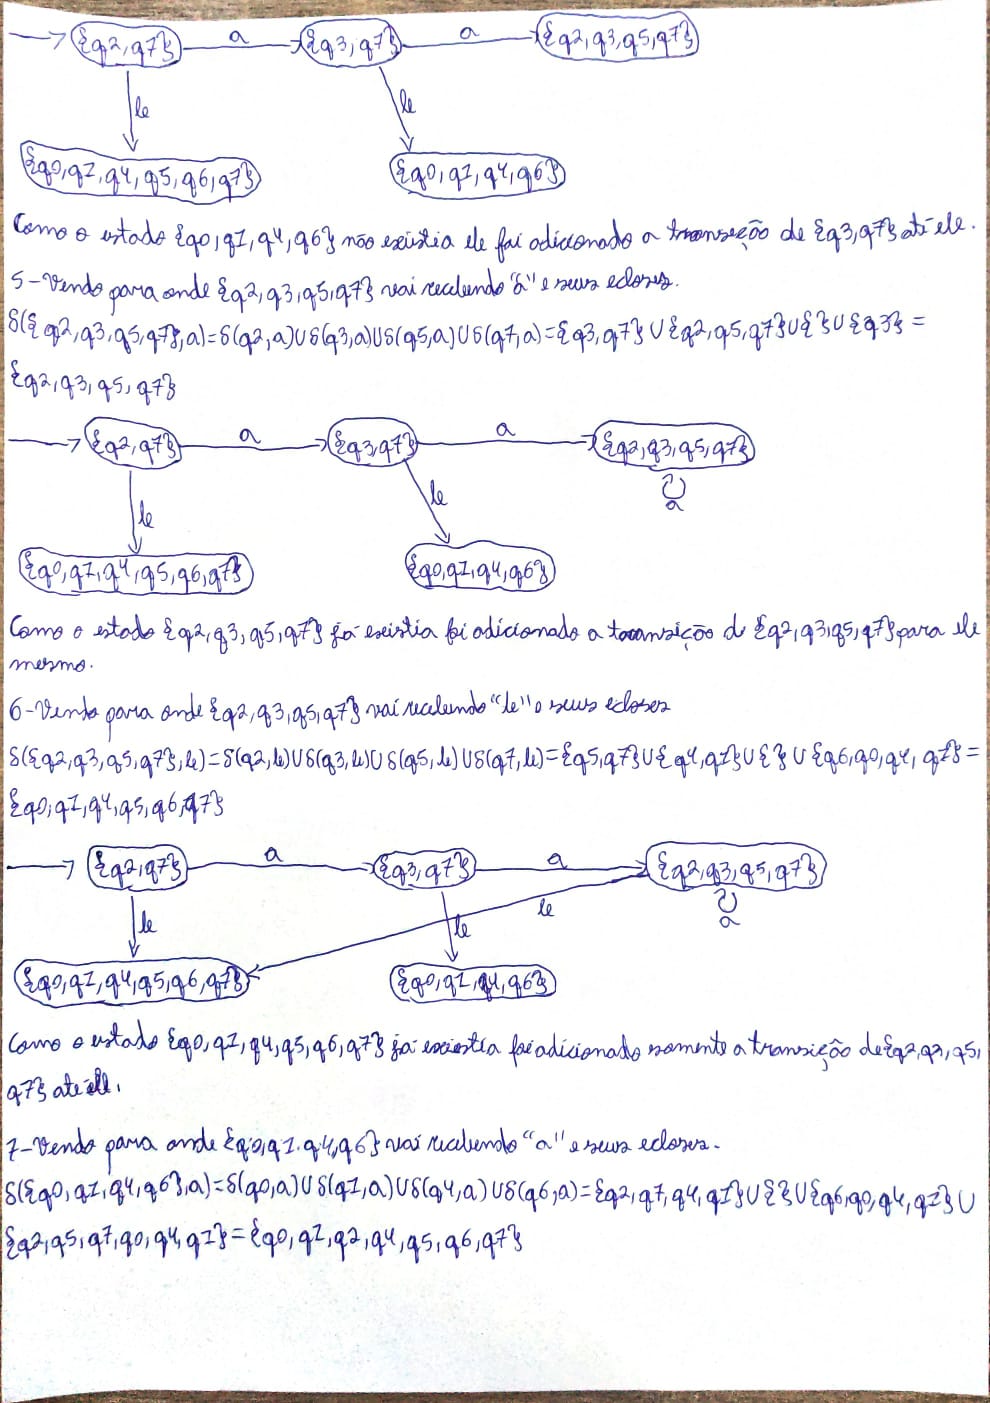 {q2,q7} a {q3,q7} a {q2,q3,q5,q7}
b b
{q0,q1,q4,q5,q6,q7} {q0,q1,q4,q6}
Como o estado {q0,q1,q4,q6} não existia ele foi adicionado a transição de {q3,q7} até ele.
5-Vendo para onde {q2,q3,q5,q7} vai recebendo "a" e seus ecloses.
δ({q2,q3,q5,q7},a)=δ(q2,a)∪δ(q3,a)∪δ(q5,a)∪δ(q7,a)={q3,q7}∪{q2,q5,q7}∪{}∪{q3}=
{q2,q3,q5,q7}
{q2,q7} a {q3,q7} a {q2,q3,q5,q7}
b b a
{q0,q1,q4,q5,q6,q7} {q0,q1,q4,q6}
Como o estado {q2,q3,q5,q7} já existia foi adicionado a transição d {q2,q3,q5,q7} para ele
mesmo.
6-Vendo para onde {q2,q3,q5,q7} vai recebendo "b" e seus ecloses
δ({q2,q3,q5,q7},b)=δ(q2,b)∪δ(q3,b)∪δ(q5,b)∪δ(q7,b)={q5,q7}∪{q4,q1}∪{}∪{q6,q0,q4,q1}=
{q0,q1,q4,q5,q6,q7}
{q2,q7} a {q3,q7} a {q2,q3,q5,q7}
b b b a
{q0,q1,q4,q5,q6,q7} {q0,q1,q4,q6}
Como o estado {q0,q1,q4,q5,q6,q7} já existia foi adicionado somente a transição de {q2,q3,q5,
q7} até ele.
7-Vendo para onde {q0,q1.q4,q6} vai recebendo "a" e seus ecloses.
δ({q0,q1,q4,q6},a)=δ(q0,a)∪δ(q1,a)∪δ(q4,a)∪δ(q6,a)={q2,q7,q4,q1}∪{}∪{q6,q0,q4,q1}∪
{q2,q5,q7,q0,q4,q1}={q0,q1,q2,q4,q5,q6,q7}